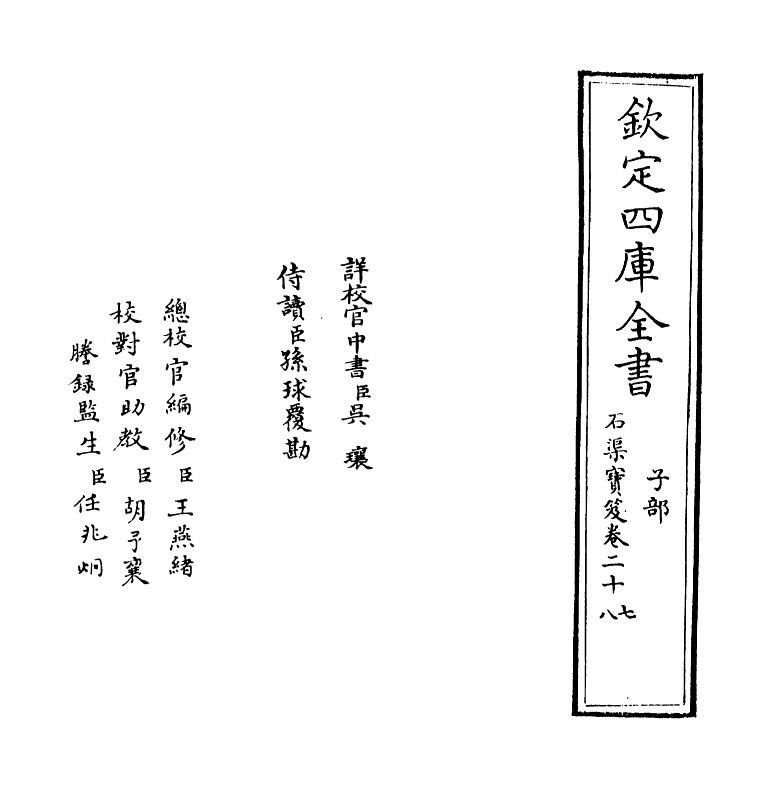 欽定四庫全書
子部
石渠寶笈卷二十七八
詳校官中書臣吳瓖
侍讀臣孫球覆勘
總校官編修臣王燕緒
校對官助教臣胡予襄
謄録監生臣任兆炯